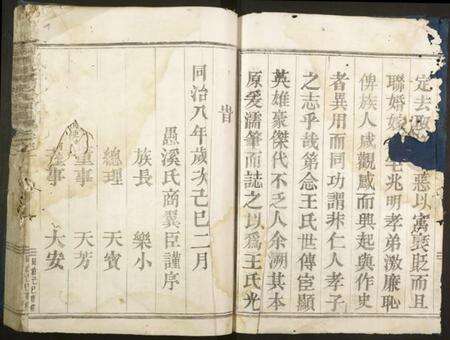 定去 惡以寓褒貶而且
聯婚嫁 宅兆明孝弟激廉恥
俾族人咸觀感而興起與作史
者異用而同功謂非仁人孝子
之志乎哉第念王氏世傳宦顯
英雄豪傑代不乏人余溯其本
原爰濡筆而誌之以為王氏光
旹
同治八年歲次己巳二月
愚溪氏商翼臣謹序
族長 樂小
總理 天賓
董事 天芳
董事 大安